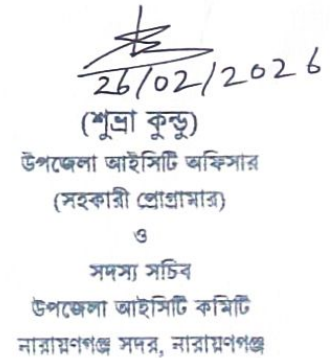 26/02/2026
(শুভ্রা কুন্ডু)
উপজেলা আইসিটি অফিসার
(সহকারী প্রোগ্রামার)
ও
সদস্য সচিব
উপজেলা আইসিটি কমিটি
নারায়ণগঞ্জ সদর, নারায়ণগঞ্জ